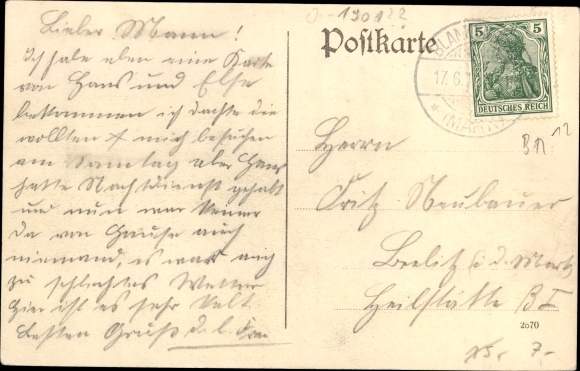 Lieber Mann!
Ich habe eben eine Karte
von Hans und Else
bekommen ich dachte die
wollten mich besuchen
am Sonntag aber Hans
hatte Nachtdienst gehabt
und nun war keiner
da von Hause auch
niemand, es war auch
zu schlechtes Wetter
hier ist es sehr kalt.
Besten Gruß d. l. Frau
0-190122
Postkarte
5 5
DEUTSCHES REICH
BLAN
17.6.
(MARK)
12
Herrn
Fritz Neubauer
Beelitz i. d. Mark
Heilstätte B I
2570
7.-